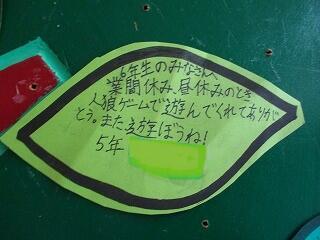 6年生のみなさんへ
業間休み、昼休みのとき
人狼ゲームで遊んでくれてありが
とう。また遊ぼうね!
5年